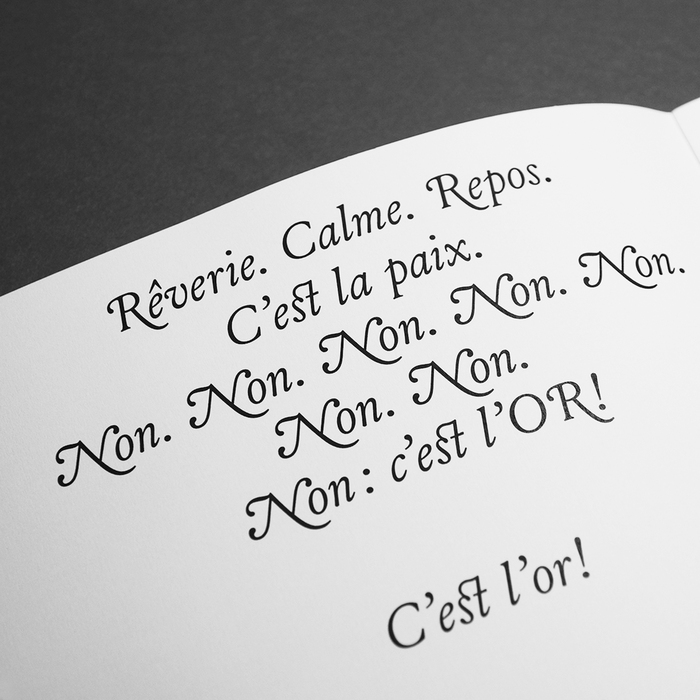 Rêverie. Calme. Repos.
C’est la paix.
Non. Non. Non. Non. Non.
Non. Non.
Non : c’est l’OR!
C’est l’or!